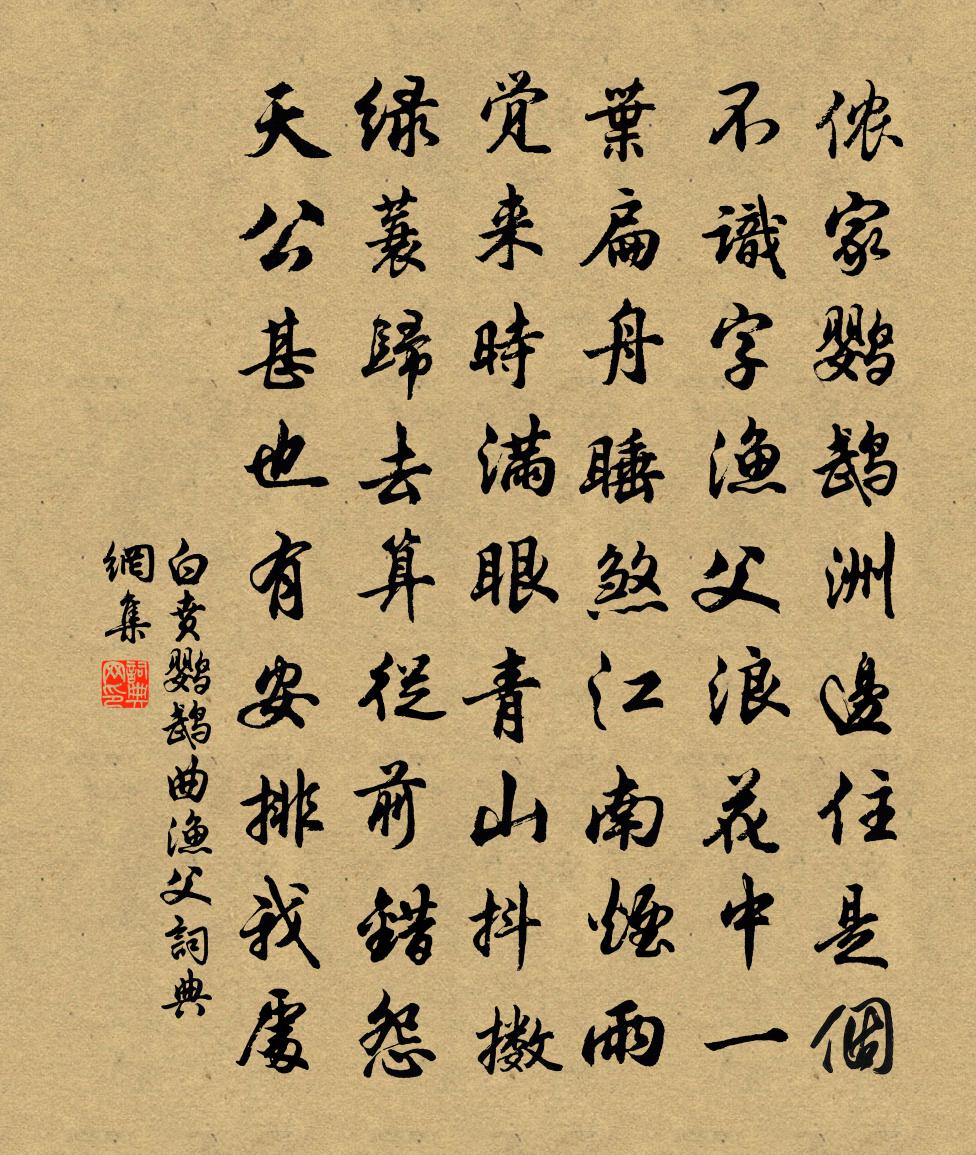 侬家鹦鹉洲邊住是個
不識字漁父浪花中一
葉扁舟睡煞江南煙雨
觉来時满眼青山抖擞
绿蓑歸去算從前錯怨
天公甚也有安排我處
白贲鹦鹉曲漁父詞典
網集
詞典网印